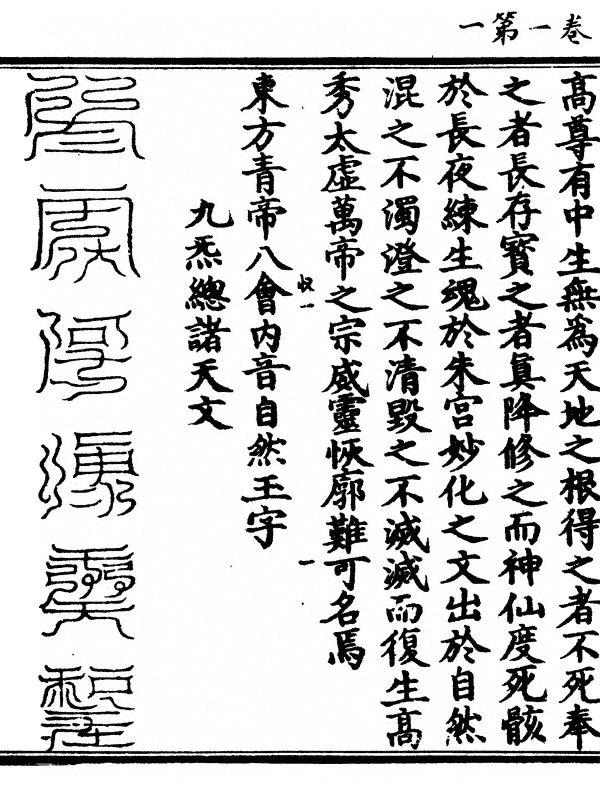 卷一第一
高尊有中生無為天地之根得之者不死奉
之者長存寳之者真降修之而神仙度死骸
於長夜練生魂於朱宮妙化之文出於自然
混之不濁澄之不清毀之不滅滅而復生高
秀太虛萬帝之宗威靈恢廓難可名焉
東方青帝八會内音自然玉字
九炁總諸天文